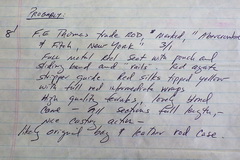 PROBABLY:
8' F.E. Thomas trade rod, "Marked, "Abercrombie
& Fitch, New York" 3/1
Full metal reel seat with pouch and
sliding band and rails. Red agate
stripper guide. Red silks tipped yellow
with full red intermediate wraps
High quality, lovely blond
cane - All sections full length,
nice casting action -
likely original bag & leather rod case